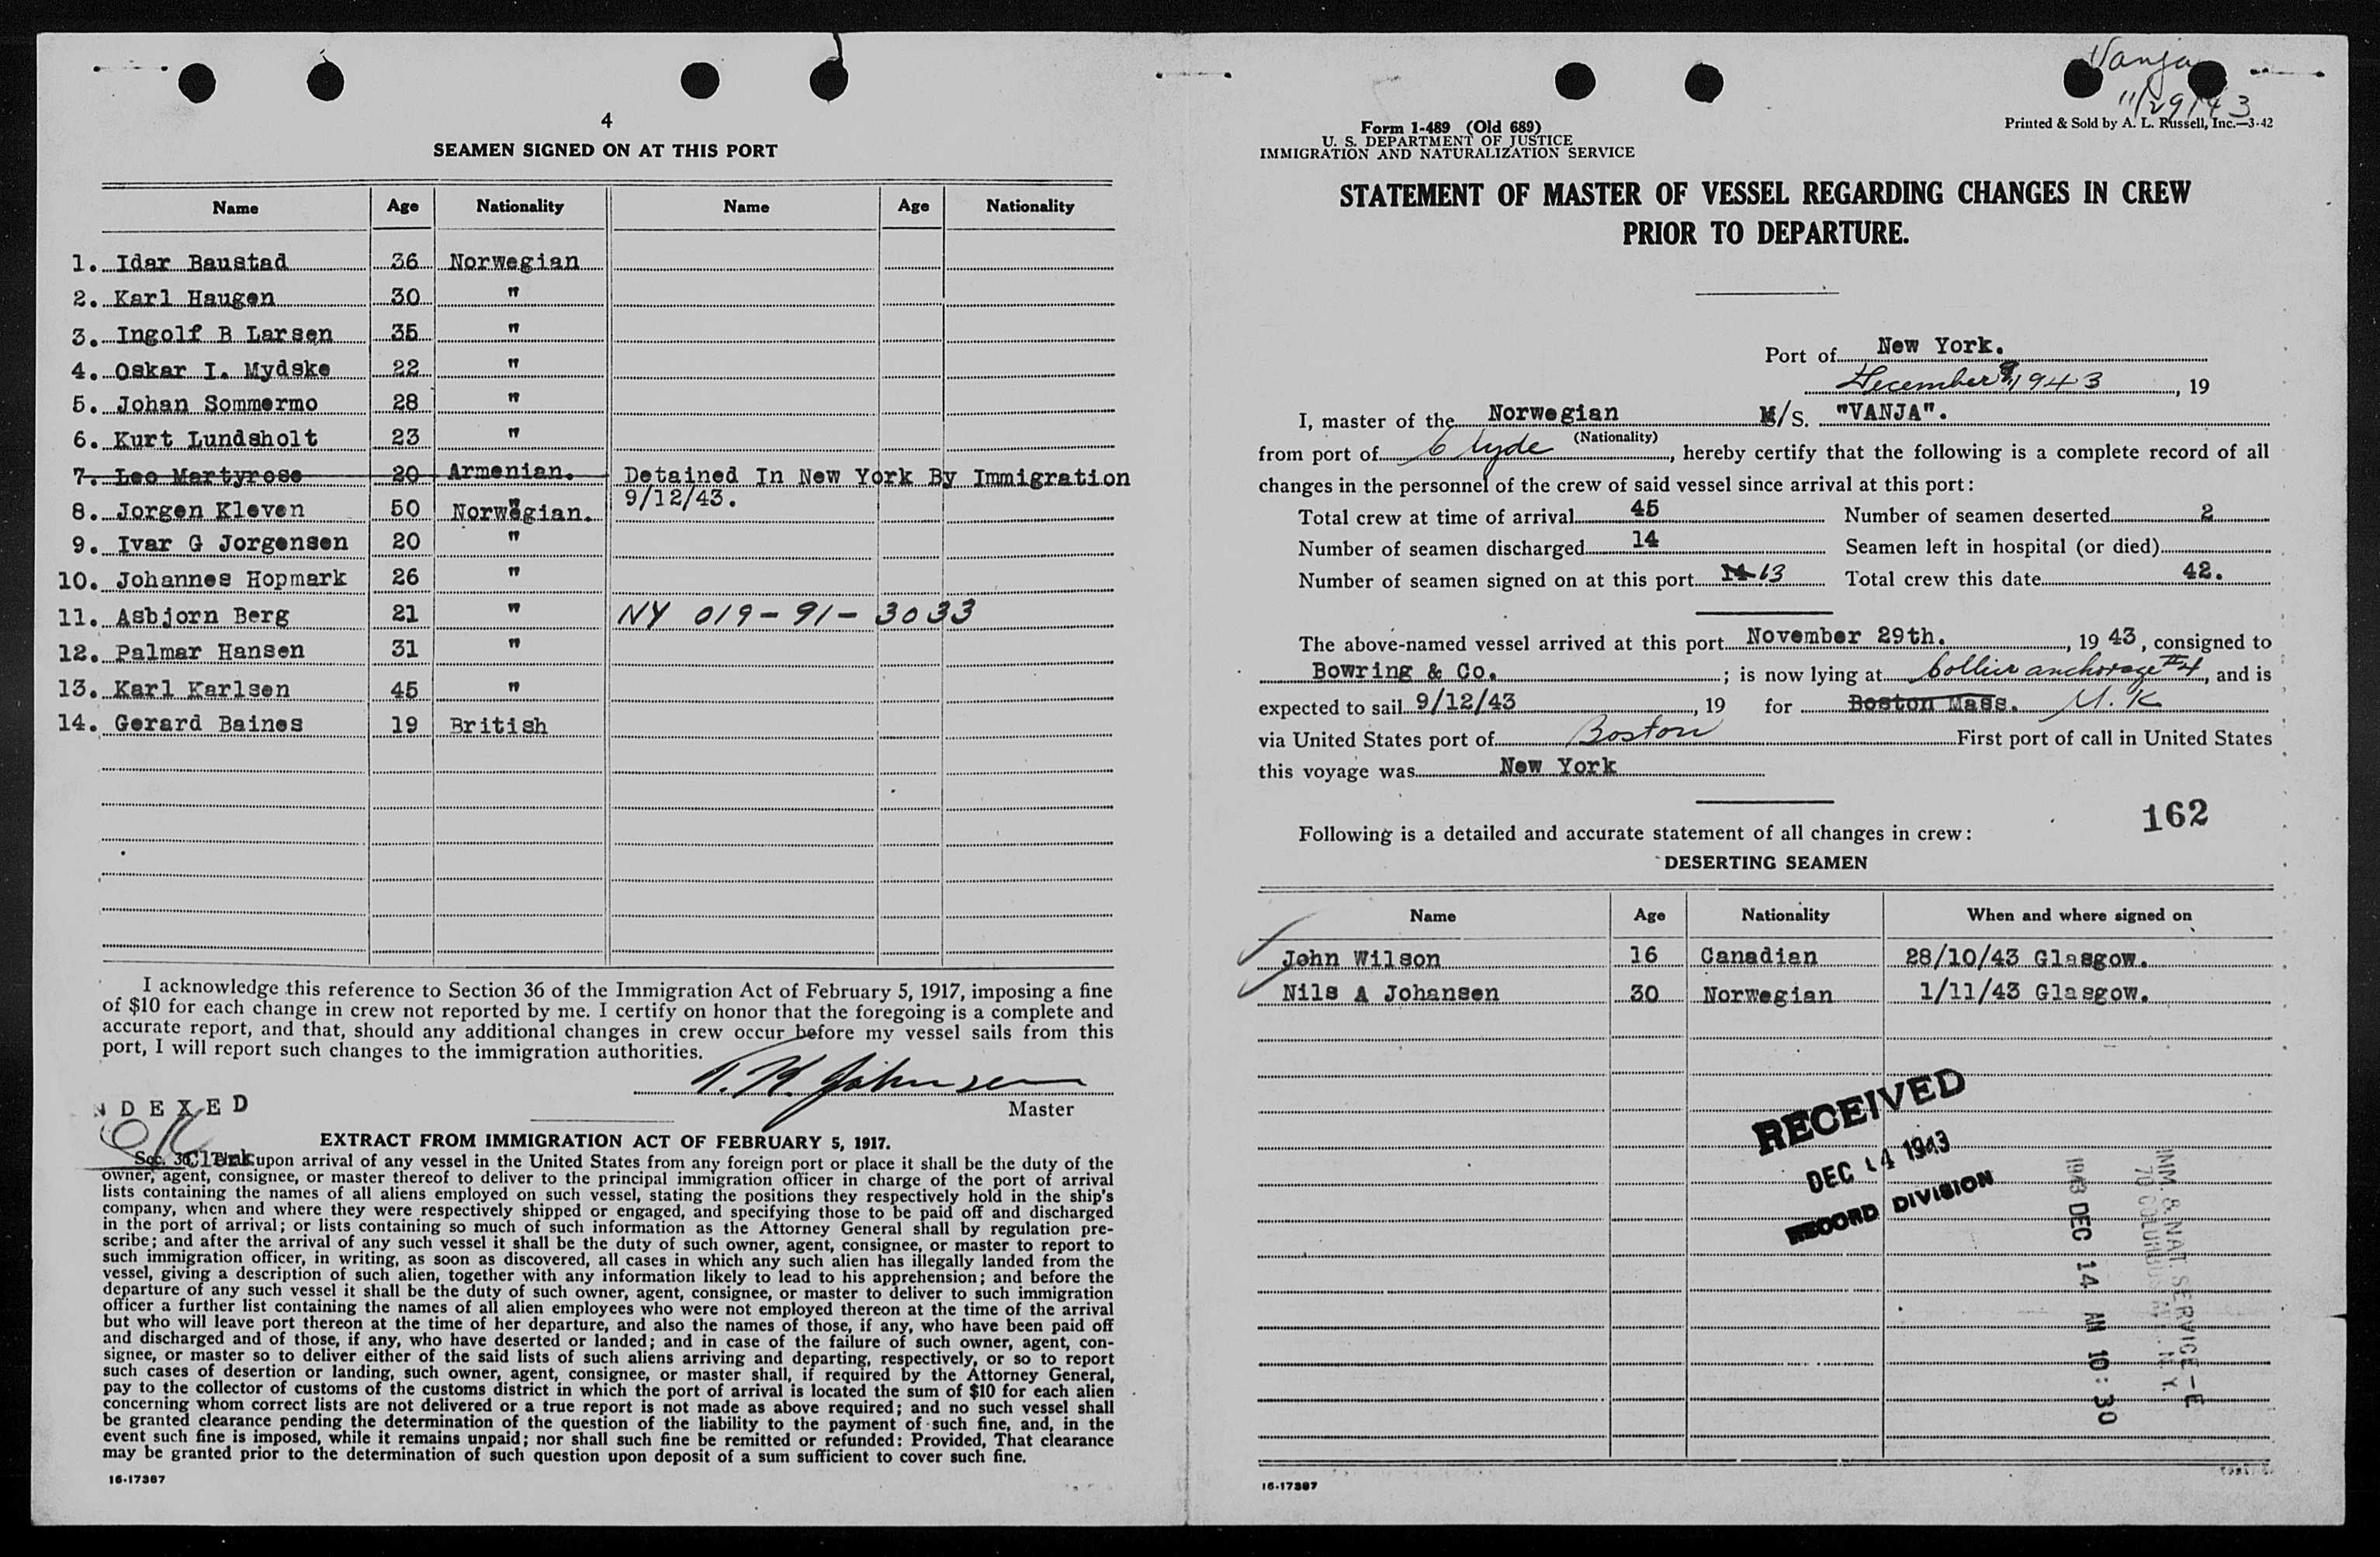 4
SEAMEN SIGNED ON AT THIS PORT
Name Age Nationality Name Age Nationality
1. Idar Baustad 36 Norwegian
2. Karl Haugen 30 "
3. Ingolf B Larsen 35 "
4. Oskar I. Mydske 22 "
5. Johan Sommermo 28 "
6. Kurt Lundsholt 23 "
7. Leo Martyrose 20 Armenian. Detained In New York By Immigration
9/12/43.
8. Jorgen Kleven 50 Norwegian.
9. Ivar G Jorgensen 20 "
10. Johannes Hopmark 26 "
11. Asbjorn Berg 21 " NY 019-91-3033
12. Palmar Hansen 31 "
13. Karl Karlsen 45 "
14. Gerard Baines 19 British
I acknowledge this reference to Section 36 of the Immigration Act of February 5, 1917, imposing a fine
of $10 for each change in crew not reported by me. I certify on honor that the foregoing is a complete and
accurate report, and that, should any additional changes in crew occur before my vessel sails from this
port, I will report such changes to the immigration authorities.
T. H. Johnsen
Master
NDEXED
Clerk
EXTRACT FROM IMMIGRATION ACT OF FEBRUARY 5, 1917.
Sec. 36. That upon arrival of any vessel in the United States from any foreign port or place it shall be the duty of the
owner, agent, consignee, or master thereof to deliver to the principal immigration officer in charge of the port of arrival
lists containing the names of all aliens employed on such vessel, stating the positions they respectively hold in the ship's
company, when and where they were respectively shipped or engaged, and specifying those to be paid off and discharged
in the port of arrival; or lists containing so much of such information as the Attorney General shall by regulation pre-
scribe; and after the arrival of any such vessel it shall be the duty of such owner, agent, consignee, or master to report to
such immigration officer, in writing, as soon as discovered, all cases in which any such alien has illegally landed from the
vessel, giving a description of such alien, together with any information likely to lead to his apprehension; and before the
departure of any such vessel it shall be the duty of such owner, agent, consignee, or master to deliver to such immigration
officer a further list containing the names of all alien employees who were not employed thereon at the time of the arrival
but who will leave port thereon at the time of her departure, and also the names of those, if any, who have been paid off
and discharged and of those, if any, who have deserted or landed; and in case of the failure of such owner, agent, con-
signee, or master so to deliver either of the said lists of such aliens arriving and departing, respectively, or so to report
such cases of desertion or landing, such owner, agent, consignee, or master shall, if required by the Attorney General,
pay to the collector of customs of the customs district in which the port of arrival is located the sum of $10 for each alien
concerning whom correct lists are not delivered or a true report is not made as above required; and no such vessel shall
be granted clearance pending the determination of the question of the liability to the payment of such fine, and, in the
event such fine is imposed, while it remains unpaid; nor shall such fine be remitted or refunded: Provided, That clearance
may be granted prior to the determination of such question upon deposit of a sum sufficient to cover such fine.
16-17387
Vanja
11/29/43
Form 1-489 (Old 689)
U. S. DEPARTMENT OF JUSTICE
IMMIGRATION AND NATURALIZATION SERVICE
Printed & Sold by A. L. Russell, Inc.—3-42
STATEMENT OF MASTER OF VESSEL REGARDING CHANGES IN CREW
PRIOR TO DEPARTURE.
Port of New York.
December 9, 1943, 19
I, master of the Norwegian M/S. "VANJA".
(Nationality)
from port of Clyde, hereby certify that the following is a complete record of all
changes in the personnel of the crew of said vessel since arrival at this port:
Total crew at time of arrival 45 Number of seamen deserted 2
Number of seamen discharged 14 Seamen left in hospital (or died)
Number of seamen signed on at this port 14 13 Total crew this date 42.
The above-named vessel arrived at this port November 29th., 19 43, consigned to
Bowring & Co. ; is now lying at Collier anchorage #4, and is
expected to sail 9/12/43, 19 for Boston Mass. U.K
via United States port of Boston First port of call in United States
this voyage was New York
162
Following is a detailed and accurate statement of all changes in crew:
DESERTING SEAMEN
Name Age Nationality When and where signed on
John Wilson 16 Canadian 28/10/43 Glasgow.
Nils A Johansen 30 Norwegian 1/11/43 Glasgow.
RECEIVED
DEC 14 1943
RECORD DIVISION
1943 DEC 14 AM 10:30
IMM. & NAT. SERVICE-E
70 COLUMBUS N.Y.
16-17387